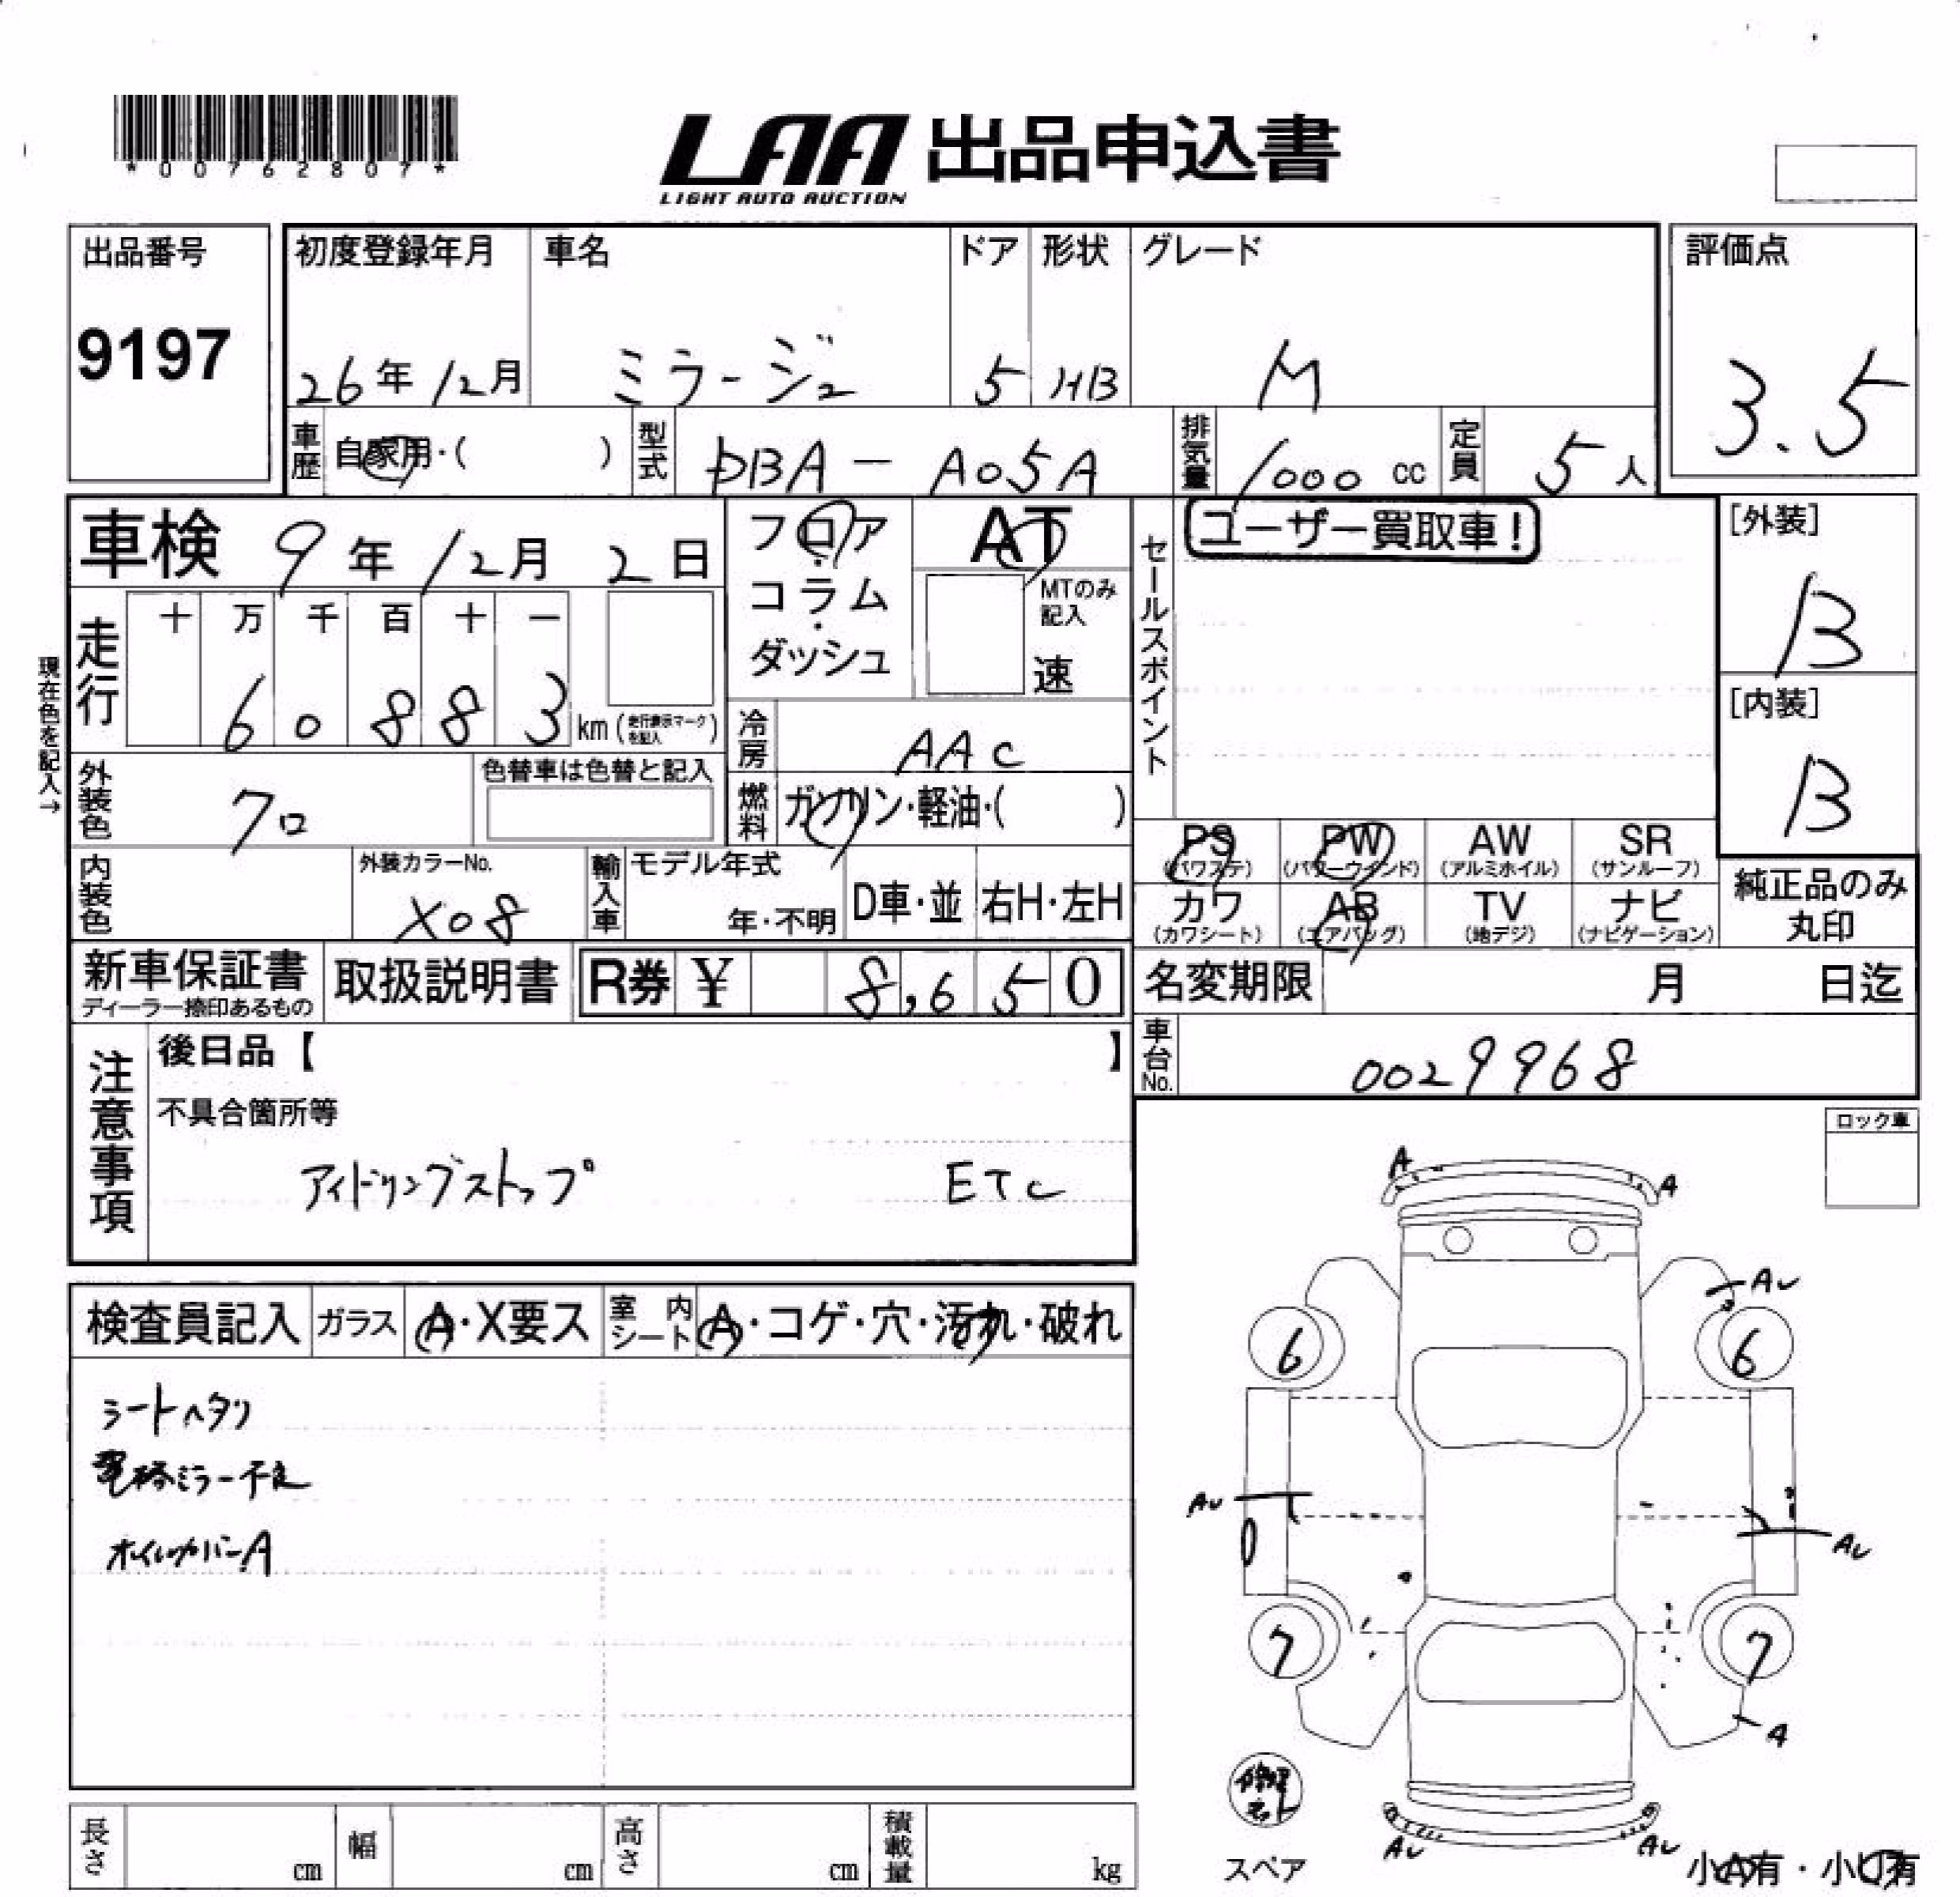 *00762807*
LAA 出品申込書
LIGHT AUTO AUCTION
出品番号
9197
初度登録年月
26年12月
車名
ミラージュ
ドア
5
形状
HB
グレード
M
評価点
3.5
車歴
自家用・( )
型式
DBA-A05A
排気量
1000 cc
定員
5人
車検 9年12月2日
フロア・コラム・ダッシュ
AT
MTのみ記入
速
セールスポイント
ユーザー買取車!
[外装]
B
[内装]
B
現在色を記入→
走行
十 万 千 百 十 一
6 0 8 8 3 km (走行表示マークを記入)
冷房
AAC
外装色
クロ
色替車は色替と記入
燃料
ガソリン・軽油・( )
PS (パワステ)
PW (パワーウインド)
AW (アルミホイル)
SR (サンルーフ)
カワ (カワシート)
AB (エアバッグ)
TV (地デジ)
ナビ (ナビゲーション)
純正品のみ丸印
内装色
外装カラーNo.
X08
輸入車
モデル年式
年・不明
D車・並
右H・左H
新車保証書
ディーラー捺印あるもの
取扱説明書
R券 ¥ 8,650
名変期限 月 日迄
車台No.
0029968
注意事項
後日品【 】
不具合箇所等
アイドリングストップ ETC
ロック車
検査員記入
ガラス
A・X要ス
室内シート
A・コゲ・穴・汚れ・破れ
シートヘタリ
電格ミラー不良
ホイルカバーA
A
A
AU
6
6
AU
AU
7
7
A
修理キット
スペア
AU
AU
小A有・小U有
長さ cm
幅 cm
高さ cm
積載量 kg